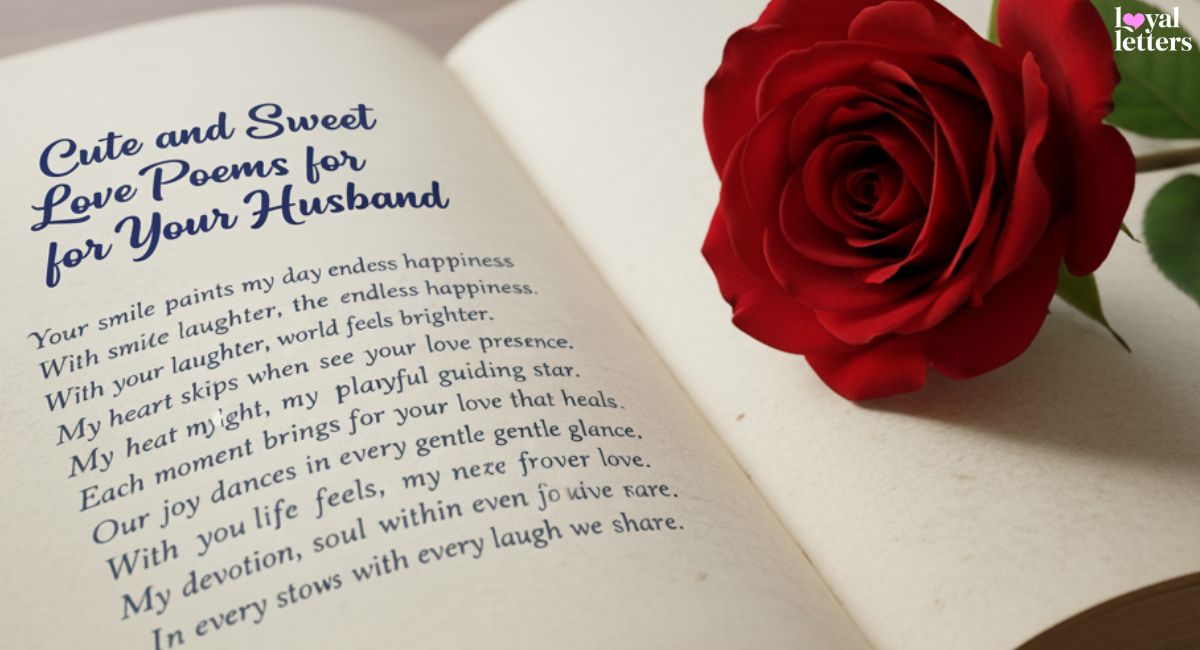 Cute and Sweet
Love Poems for
for Your Husband
Your smile paints my day endess happiness
With smile laughter, the endless happiness.
With your laughter, world feels brighter.
My heart skips when see your love presence.
My heat my ght, my playful guiding star.
Each moment brings for your love that heals.
Our joy dances in every gentle gentle glance,
With you life feels, my neze frover love.
My devotion, soul within even
In every stows with every laugh we share.
loyal
letters